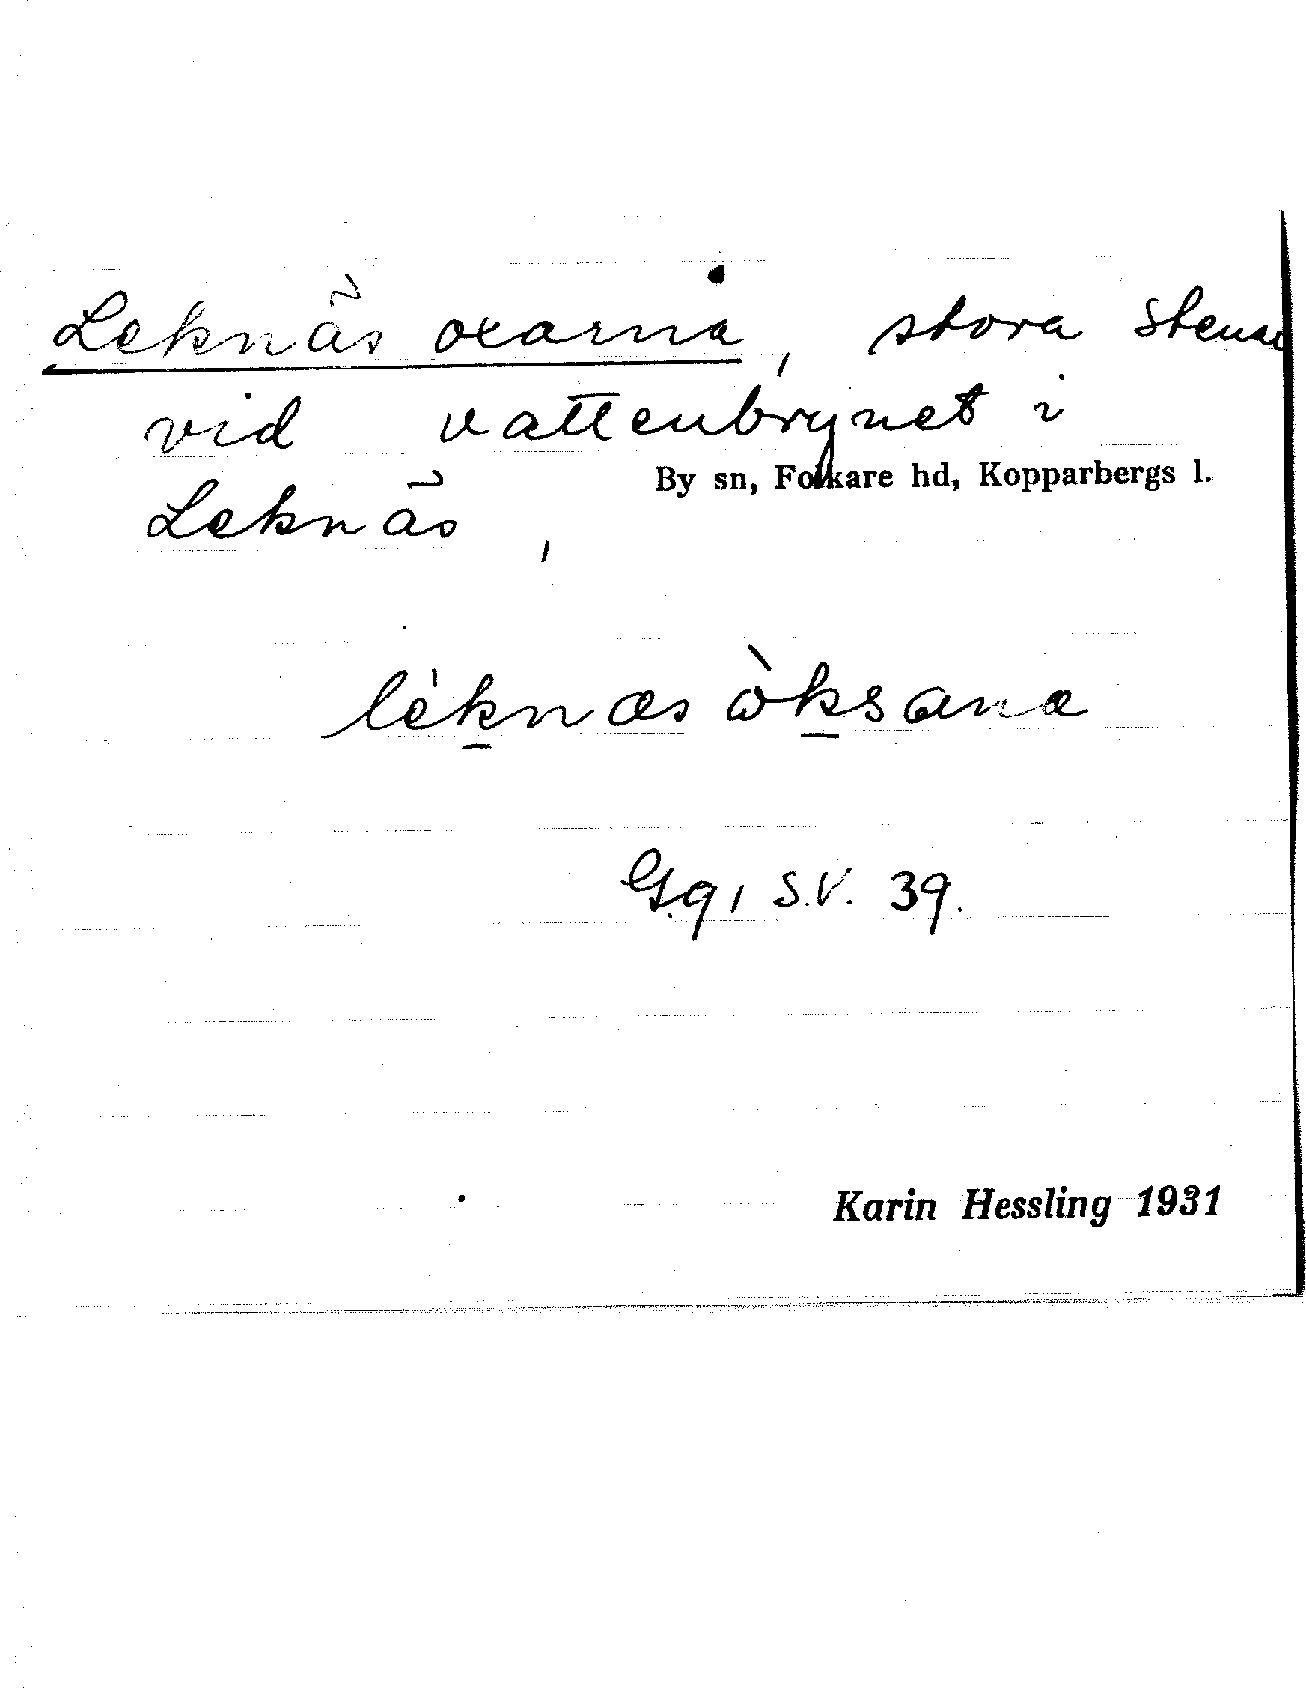 Leknäs oxarna, stora stena
vid vattenbrynet i
By sn, Folkare hd, Kopparbergs l.
Leknäs,
lèknæs òksana
G.q, S.V. 39.
Karin Hessling 1931